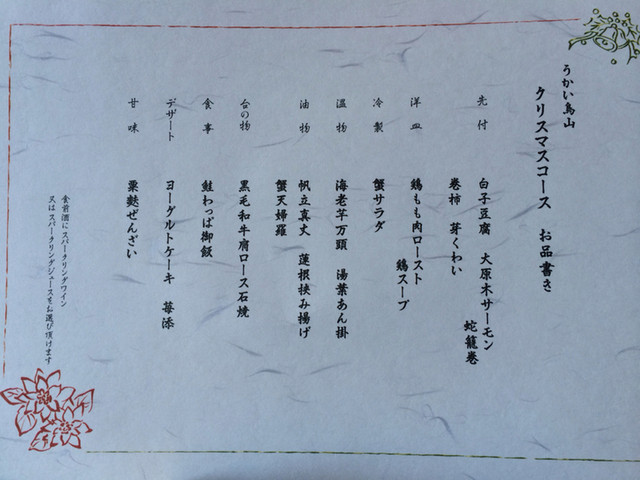 うかい鳥山
クリスマスコース　お品書き
先付　白子豆腐　大原木サーモン
蛇籠巻
巻柿　芽くわい
洋皿　鶏もも肉ロースト
鶏スープ
冷製　蟹サラダ
温物　海老芋万頭　湯葉あん掛
油物　帆立真丈　蓮根挟み揚げ
蟹天婦羅
台の物　黒毛和牛肩ロース石焼
食事　鮭わっぱ御飯
デザート　ヨーグルトケーキ　苺添
甘味　粟麩ぜんざい
食前酒にスパークリングワイン
又はスパークリングジュースをお選び頂けます